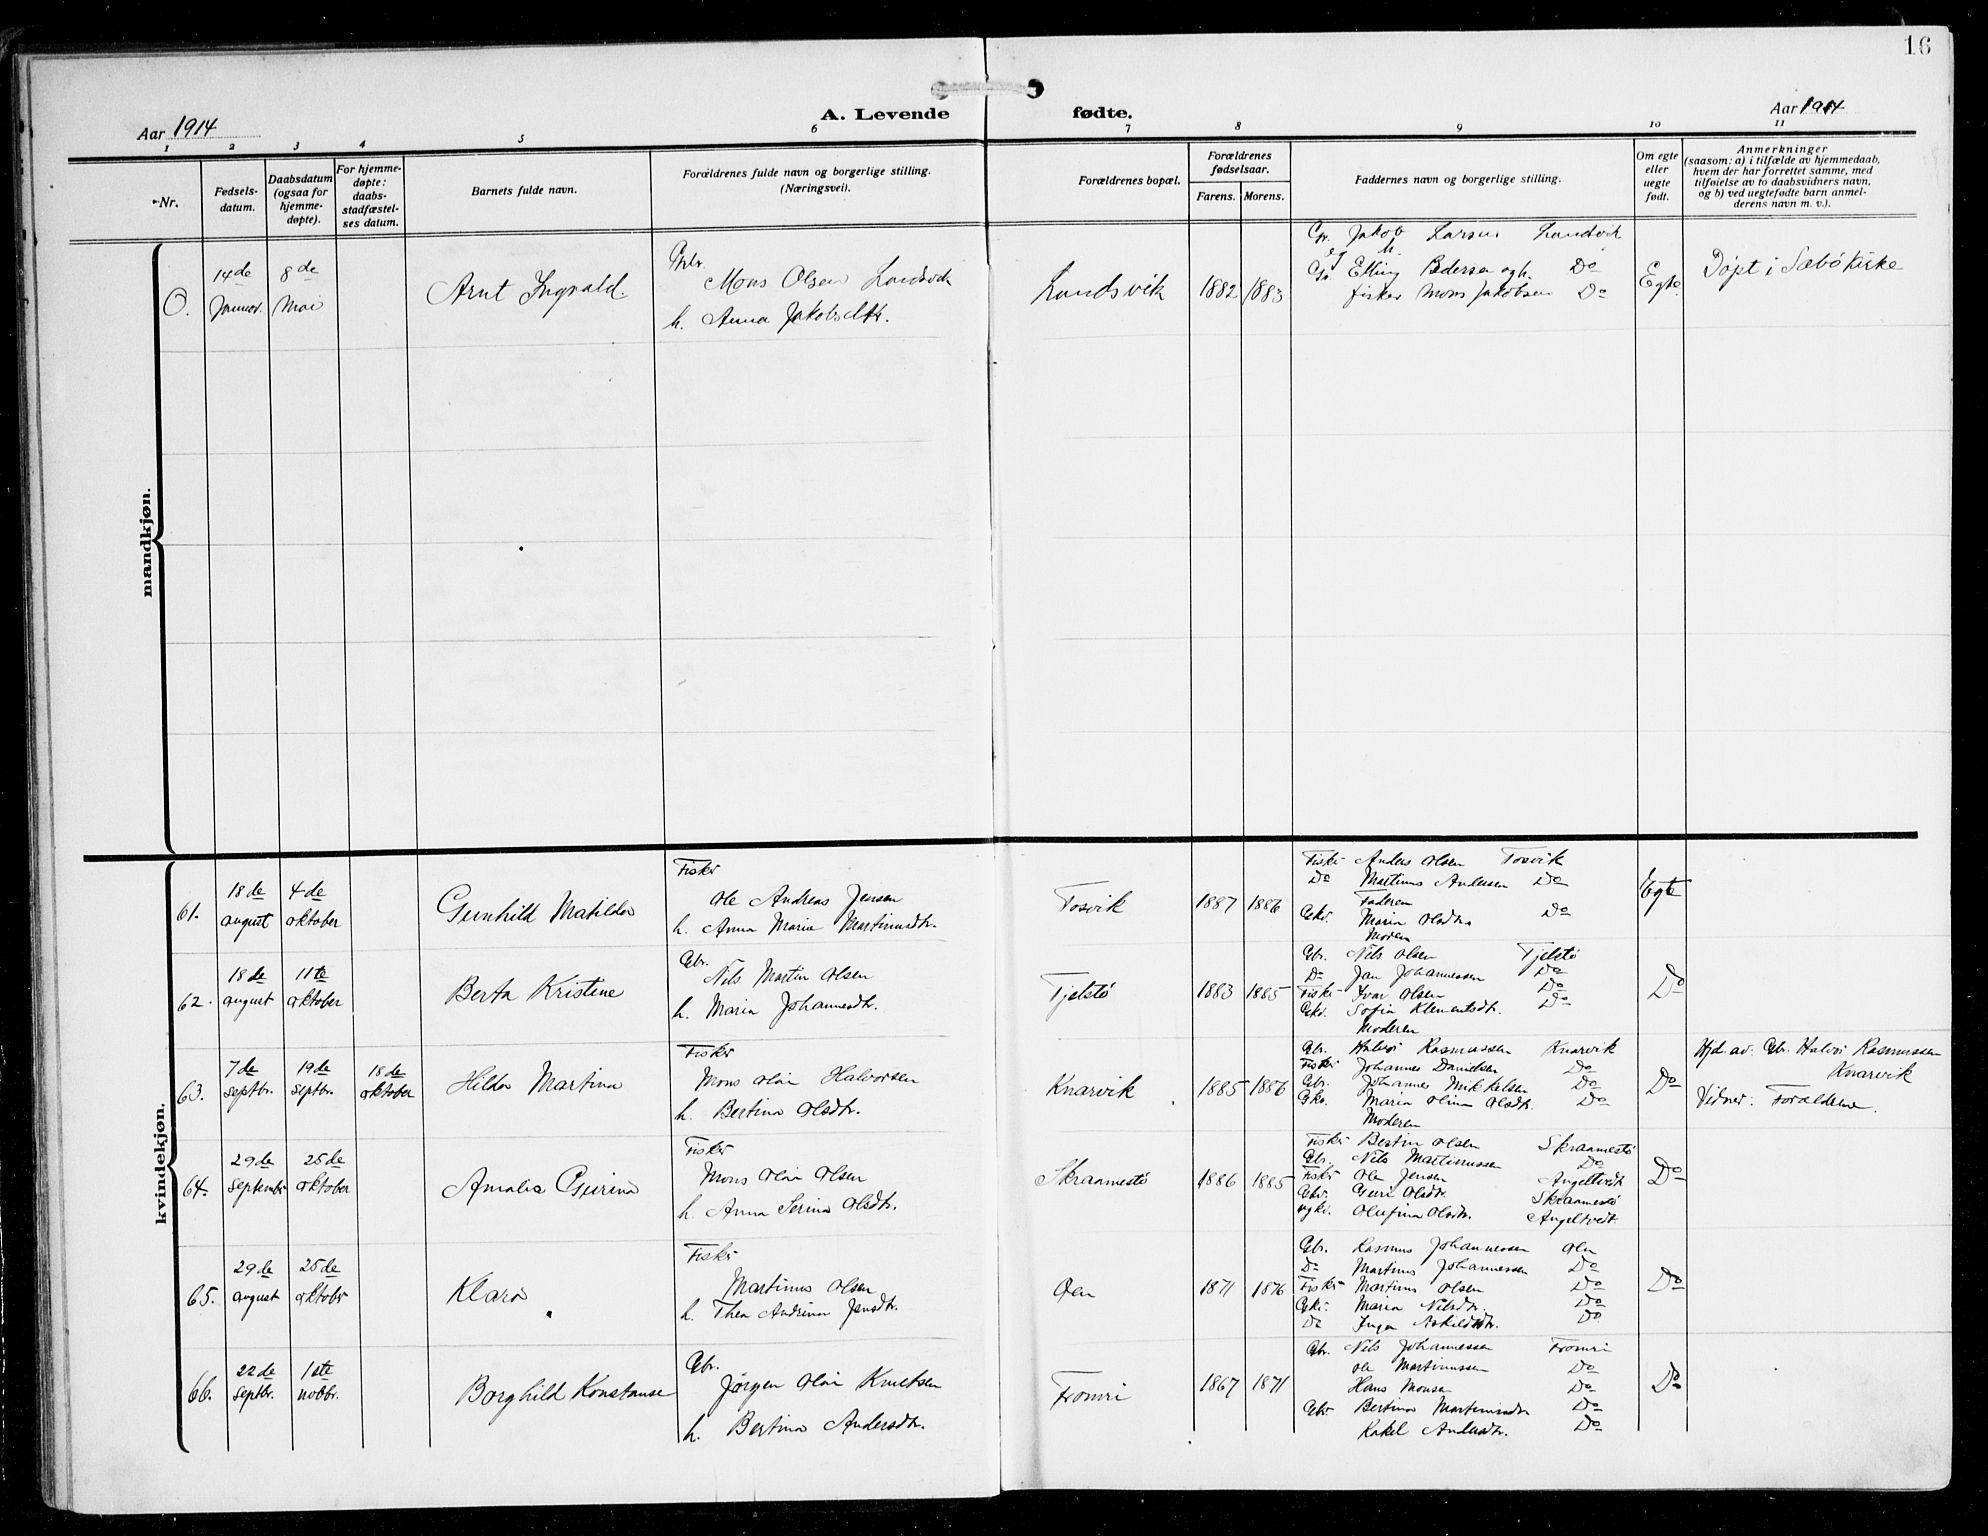 16
Aar 1914
A. Levende fødte.
Aar 1914
1 2 3 4 5 6 7 8 9 10 11
Nr.
Fødsels-
datum.
Daabsdatum
(ogsaa for
hjemme-
døpte).
For hjemme-
døpte:
daabs-
stadfæstel-
ses datum.
Barnets fulde navn.
Forældrenes fulde navn og borgerlige stilling.
(Næringsvei).
Forældrenes bopæl.
Forældrenes
fødselsaar.
Farens. Morens.
Faddernes navn og borgerlige stilling.
Om egte
eller
uegte
født.
Anmerkninger
(saasom: a) i tilfælde av hjemmedaab,
hvem der har forrettet samme, med
tilføielse av to daabsvidners navn,
og b) ved uegtefødte barn anmel-
derens navn m. v.).
mandkjøn.
O.
14de
Januar.
8de
Mai
Arnt Ingvald.
Mons Olsen Landsvik
h. Anna Jakobsdtr.
Landsvik
1882 1883
Jakob Larsen Landsvik
og h.
Elling Pedersen og h. Do
fisker Mons Jakobsen Do
Egte.
Døpt i Sæbö Kirke
kvindekjøn.
61.
18de
august
4de
oktober
Gunhild Matilda
Fisker
Ole Andreas Jensen
h. Anna Marie Martinusdtr.
Tosvik
1887 1886
Fisker Anders Olsen Tosvik
Do Martinus Andersen Do
Faderen
Gkv. Maria Olsdtr. Do
Moderen
Egte
62.
18de
august
11te
oktober
Berta Kristine
Gbr.
Nils Martin Olsen
h. Maria Johannesdtr.
Tjelstö
1883 1885
Gbr. Nils Olsen Tjelstö
Do Jan Johannessen Do
Fisker Ivar Olsen Do
Gkv. Sofia Klementsdtr. Do
Moderen
Do
63.
7de
septbr.
19de
septbr.
18de
oktober
Hilda Martina
Fisker
Mons Olai Halvorsen
h. Bertina Olsdtr.
Knarvik
1885 1886
Gbr. Halvor Rasmussen Knarvik
Fisker Johannes Danielsen Do
Gbr. Johannes Mikkelsen Do
Gkv. Maria Olina Olsdtr. Do
Moderen
Do
Hjd. av: Gbr. Halvor Rasmussen
Knarvik
Vidner: Forældrene.
64.
29de
september
25de
oktober
Amalia Gurina
Fisker
Mons Olai Olsen
h. Anna Serina Olsdtr.
Skraamestö
1886 1885
Fisker Bertin Olsen Skraamestö
Gbr. Nils Martinussen Do
Fisker Ole Jensen Angeltveit
Gkv. Guri Olsdtr. Skraamestö
ugkv. Olufina Olsdtr. Angeltveit
Do
65.
29de
august
25de
oktober
Klara
Fisker
Martinus Olsen
h. Thea Andrina Jensdtr.
Oen
1871 1876
Gbr. Rasmus Johannessen Oen
Do Martinus Johannessen Do
Fisker Martinus Olsen Do
Gkv. Maria Nilsdtr. Do
Do Inga Askildsdtr. Do
Do
66.
22de
septbr.
1ste
novbr.
Borghild Konstanse
Gbr.
Jørgen Olai Knutsen
h. Bertina Andersdtr.
Fromri
1867 1871
Gbr. Nils Johannessen Fromri
Ole Martinussen Do
Hans Monsen Do
Gkv. Bertina Martinusdtr Do
Rakel Andersdtr. Do
Do